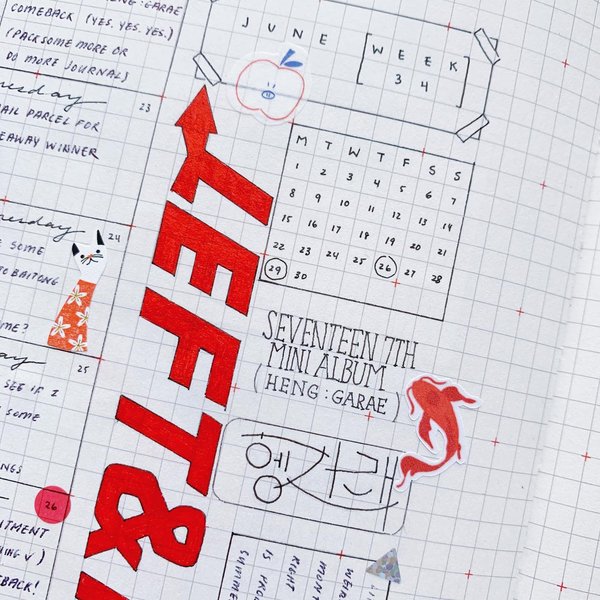 ENG:GARAE
COMEBACK (YES. YES. YES.)
(PACK SOME MORE OR
DO MORE JOURNAL)
sday
23
AIL PARCEL FOR
EAWAY WINNER
nesday
24
E SOME
TO BAITONG
OME?
day
25
SEE IF I
SOME
NGS
26
NTMENT
KING √)
EBACK!
LEFT &
JUNE
[WEEK
34]
M T W T F S S
1 2 3 4 5 6 7
8 9 10 11 12 13 14
15 16 17 18 19 20 21
22 23 24 25 26 27 28
29 30
SEVENTEEN 7TH
MINI ALBUM
(HENG:GARAE)
헹가래
MONT
RIGHT
SUMME